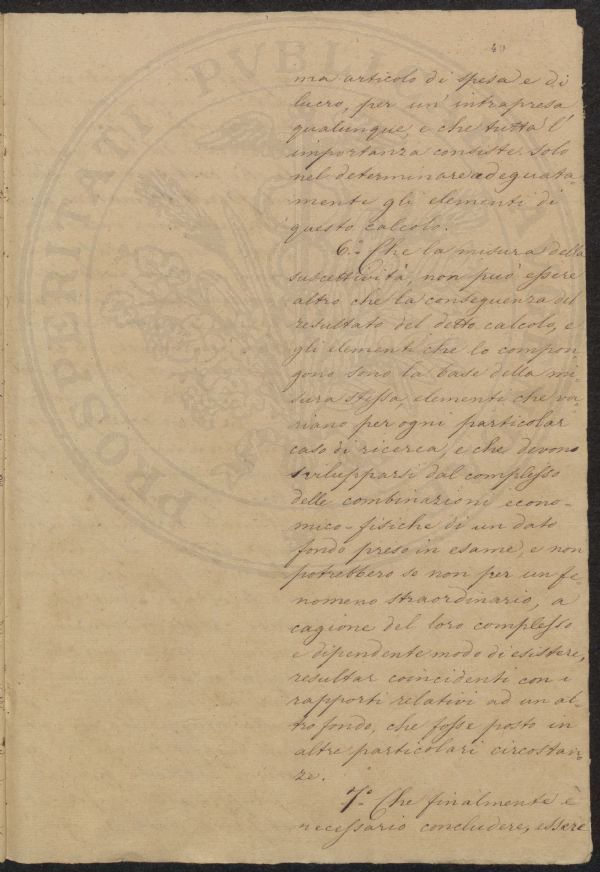 40
ma articolo di spesa e di
lucro, per un' intrapresa
qualunque, e che tutta l'
importanza consiste solo
nel determinare adeguata-
mente gli elementi di
questo calcolo.
6.° Che la misura della
suscettività, non può essere
altro che la conseguenza del
resultato del detto calcolo, e
gli elementi che lo compon
gono sono la base della mi-
sura stessa, elementi che va-
riano per ogni particolar
caso di ricerca, e che devono
svilupparsi dal complesso
delle combinazioni econo-
mico-fisiche di un dato
fondo preso in esame, e non
potrebbero se non per un fe-
nomeno straordinario, a
cagione del loro complesso
e dipendente modo di esistere,
resultar coincidenti con i
rapporti relativi ad un al-
tro fondo, che fosse posto in
altre particolari circostan-
ze.
7.° Che finalmente è
necessario concludere, essere
PROSPERITATI PVBLI